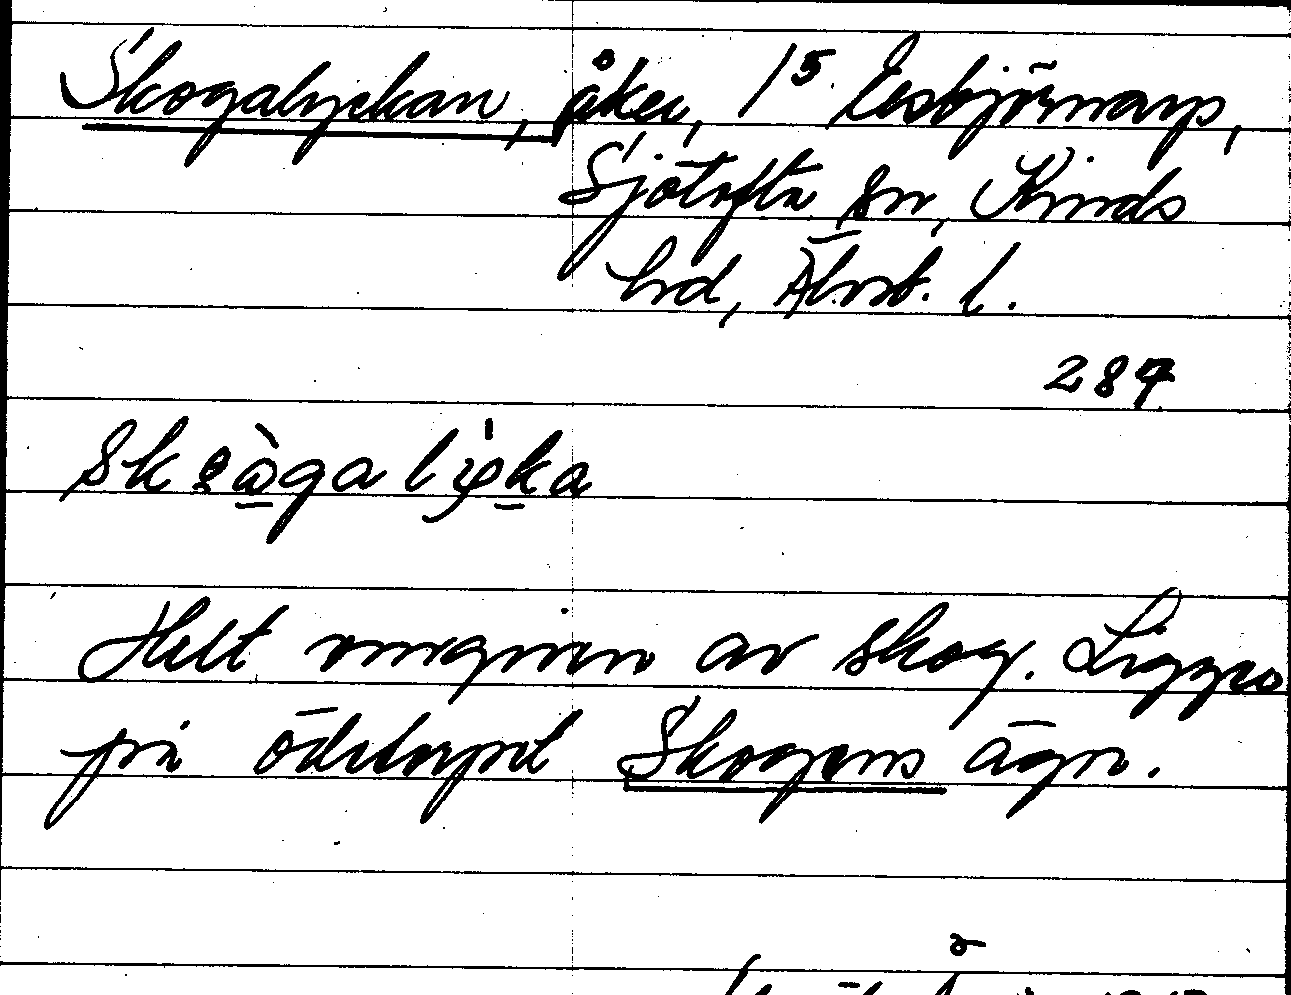 Skogalyckan, åker, 1⁵ Esbjörnarp,
Sjötofta sn, Kinds
hrd, Älvsb. l.
287
Helt omgiven av skog. Ligger
på ödetorpet Skogens ägor.